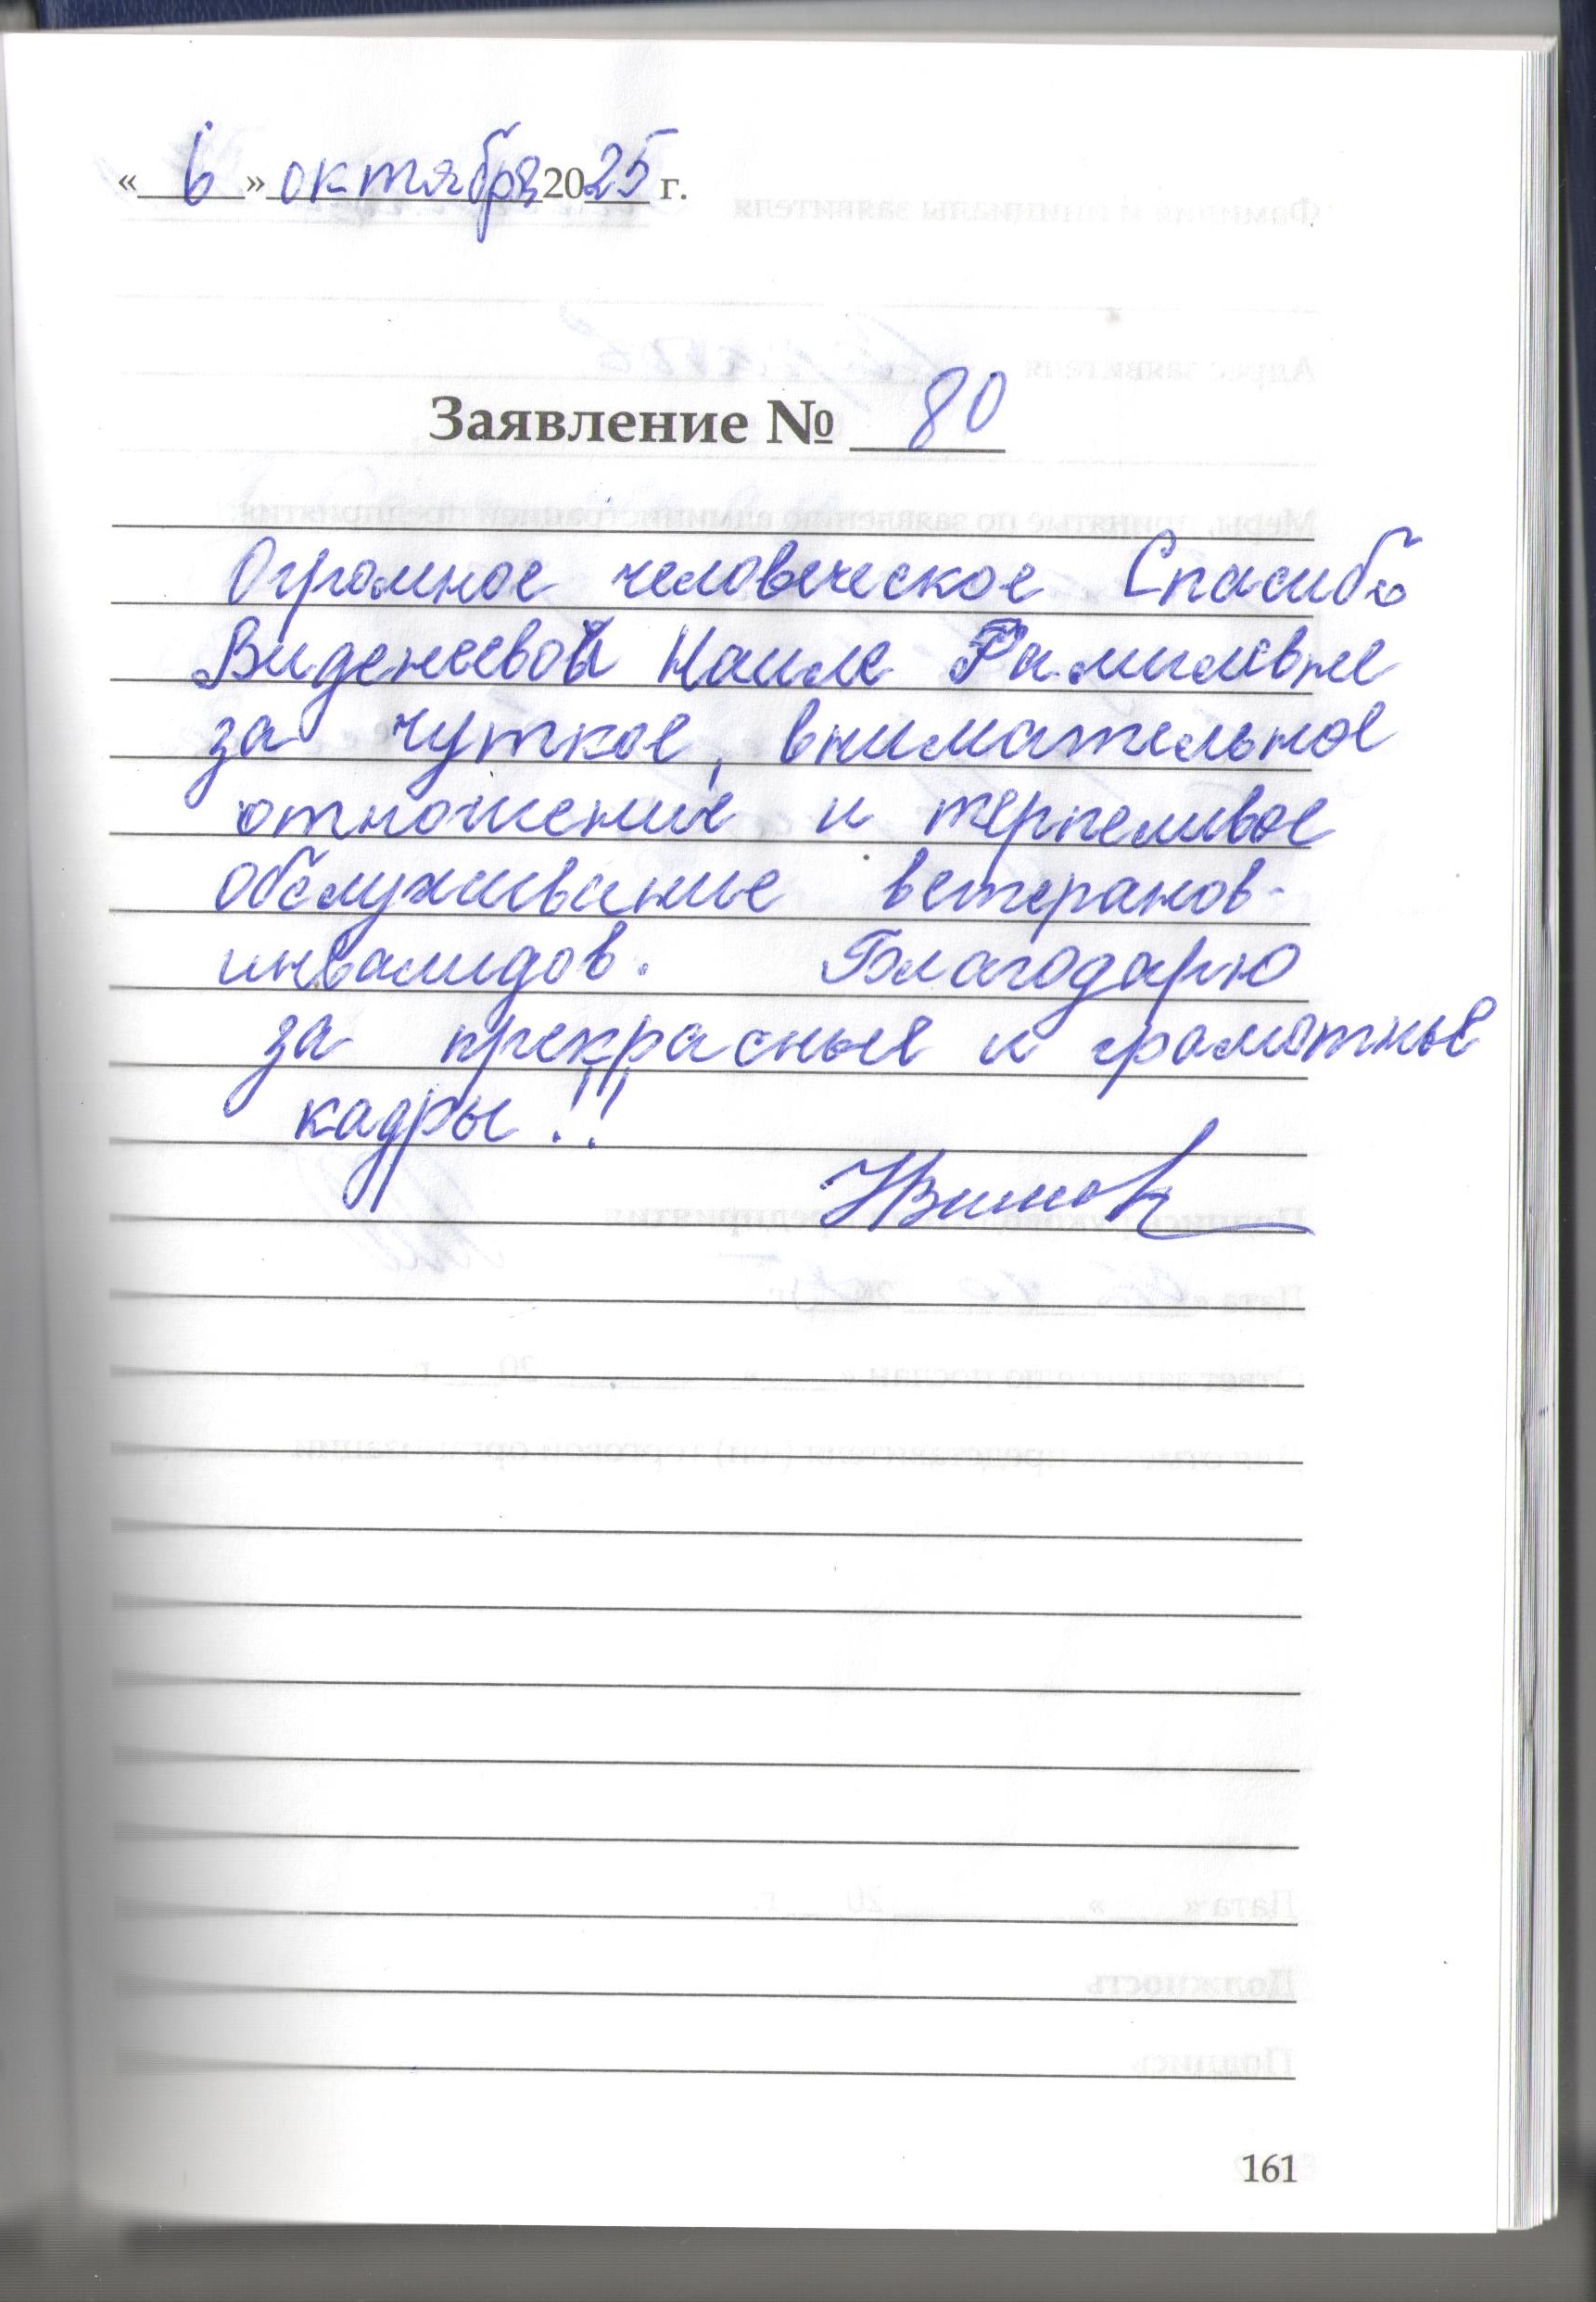 « 6 » октября 2025 г.
Заявление № 80
Огромное человеческое Спасибо
Виденеевой Наиле Рамилевне
за чуткое, внимательное
отношение и терпеливое
обслуживание ветеранов-
инвалидов. Благодарю
за прекрасные и грамотные
кадры!!
161